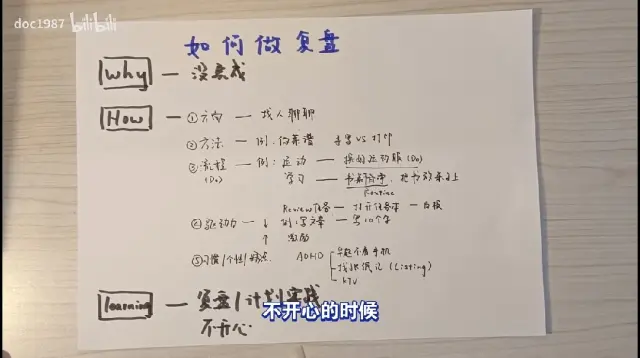 doc1987 bilibili
如何做复盘
Why — 没完成
How — ①方向 — 找人聊聊
②方法 — 例:你靠谱 手写 VS 打印
③流程 — 例:运动 — 换好运动服(Do)
(Do) 学习 — 书 , 把书放桌子上
Routine
Review任务 — 打开任务本 — 白板
④驱动力 — ↓ 例:写文章 — 写10个字
↑ 激励
⑤习惯/个性/特点 ADHD 早起不看手机
找 (Listing)
KTV
learning — 复盘/计划/实践
不开心
不开心的时候